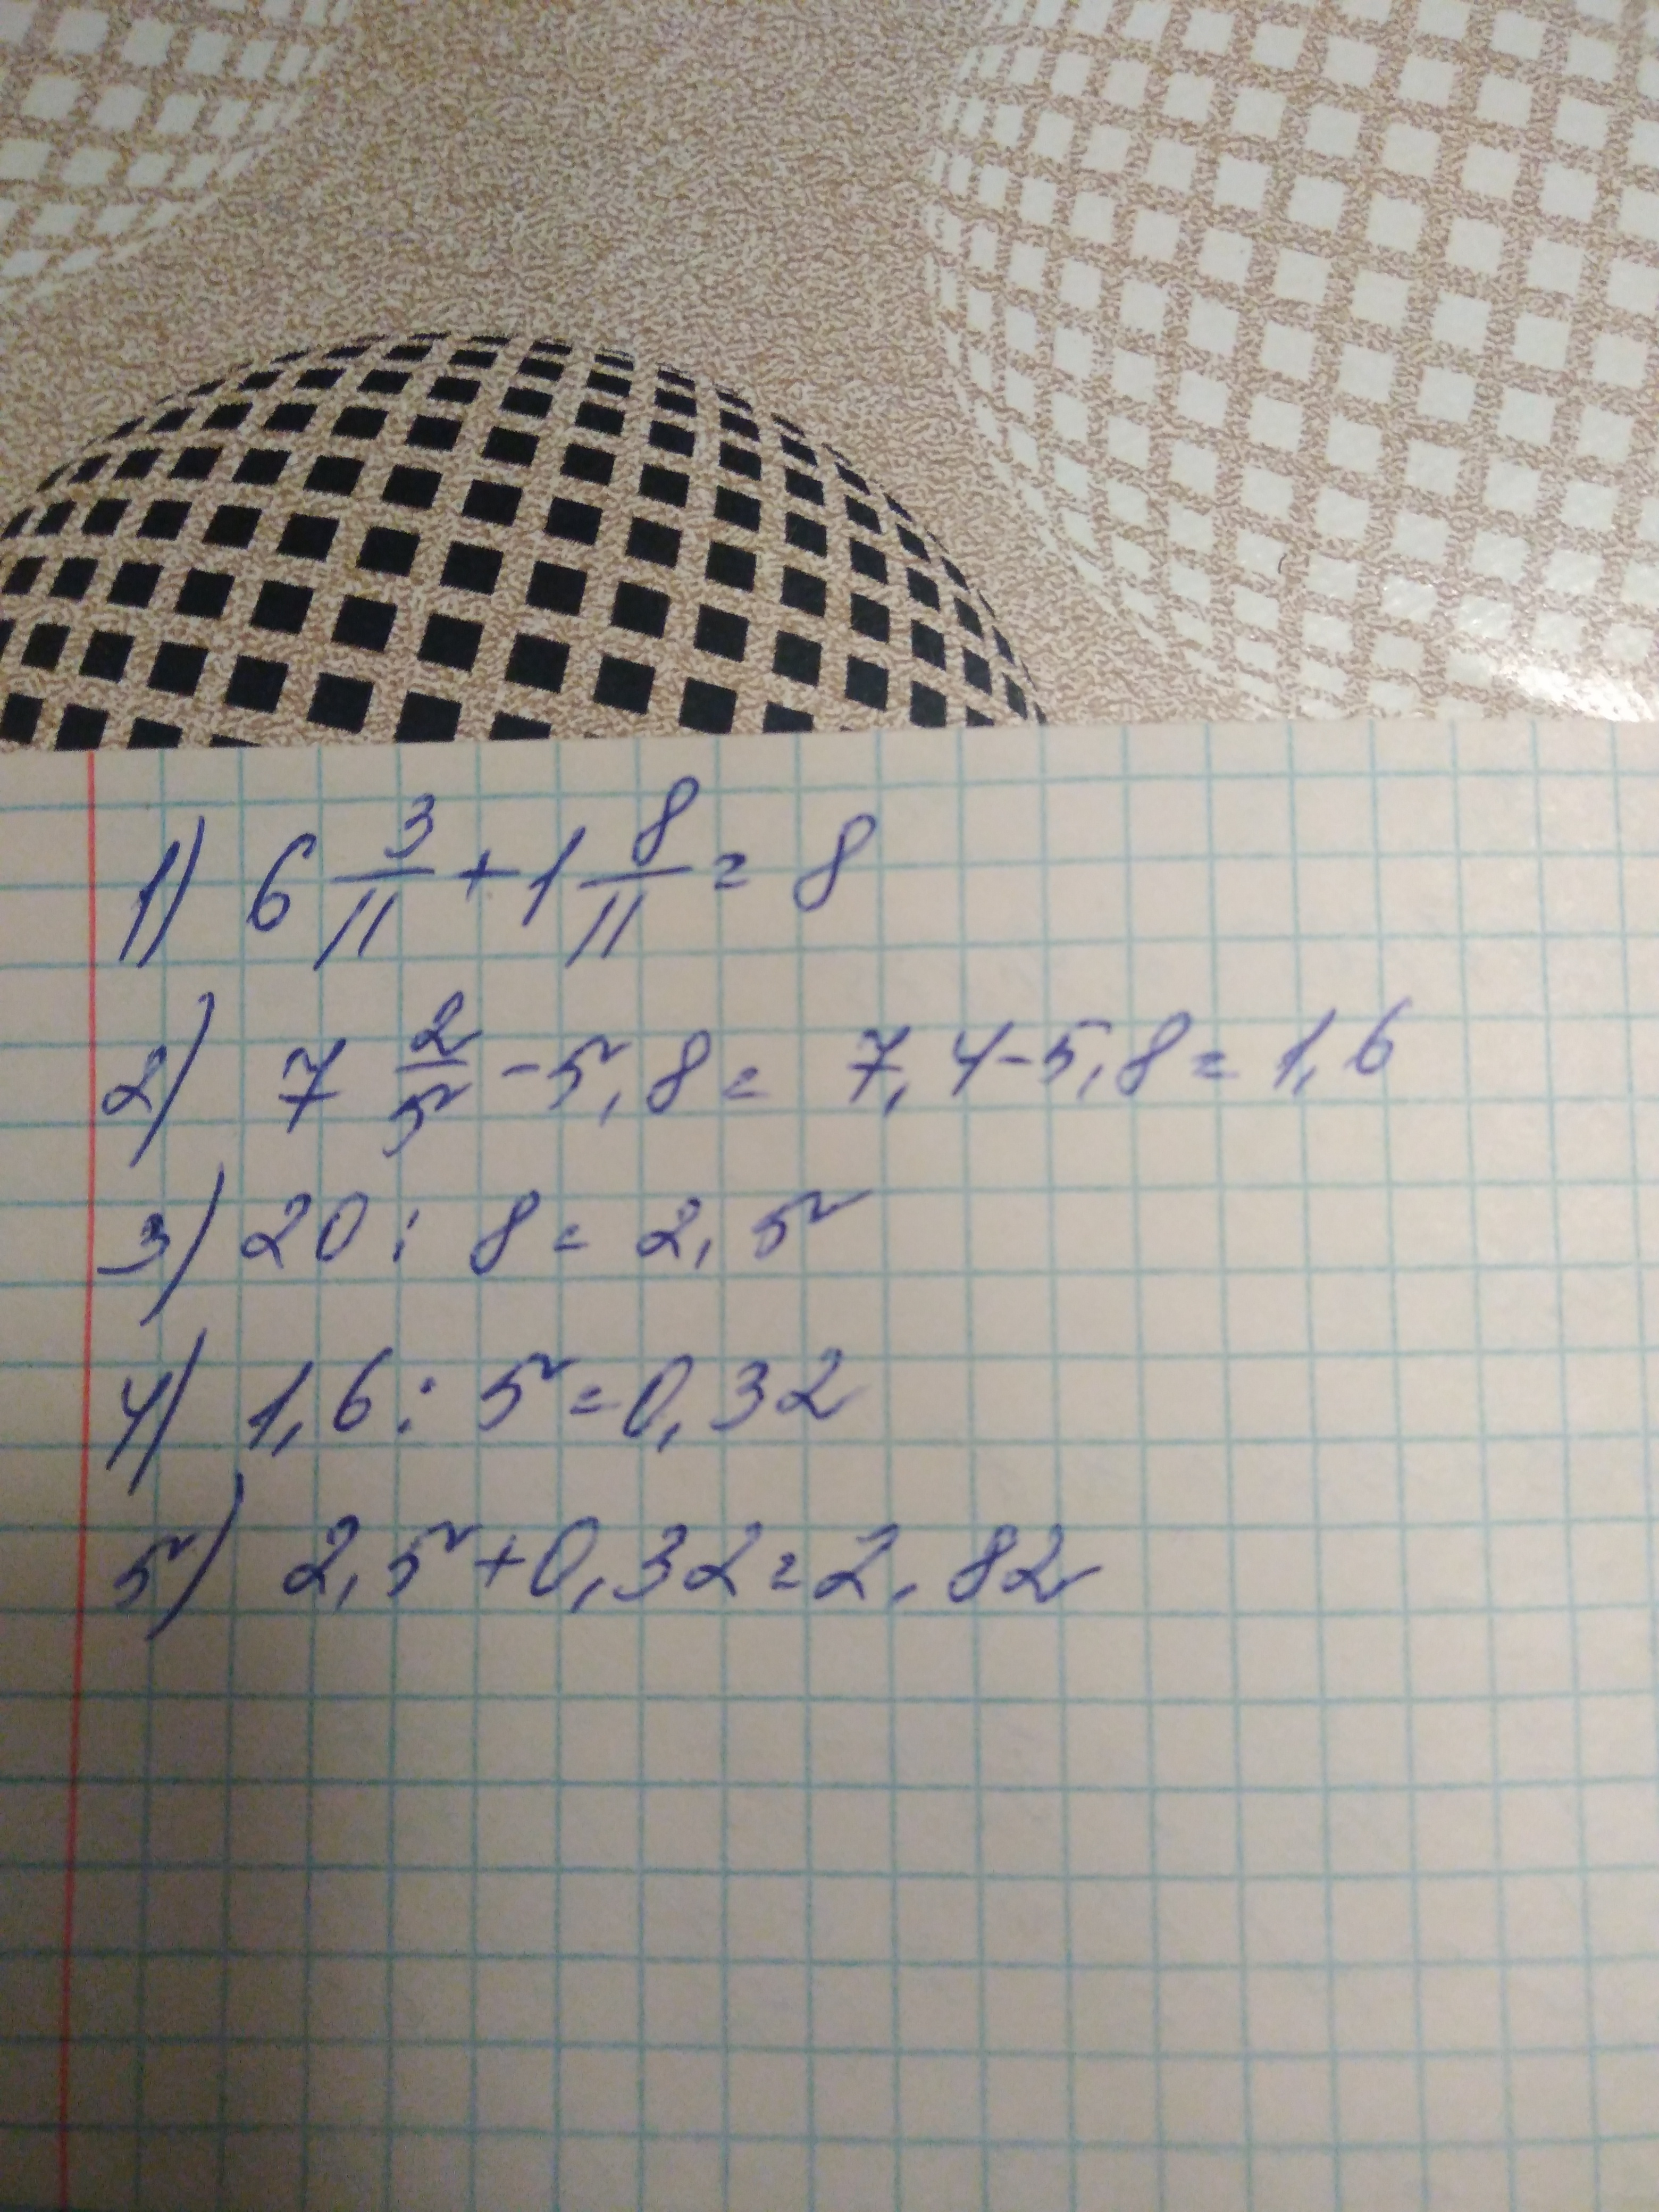 1) 6 3/11 + 1 8/11 = 8
2) 7 2/5 - 5,8 = 7,4 - 5,8 = 1,6
3) 20 : 8 = 2,5
4) 1,6 : 5 = 0,32
5) 2,5 + 0,32 = 2,82